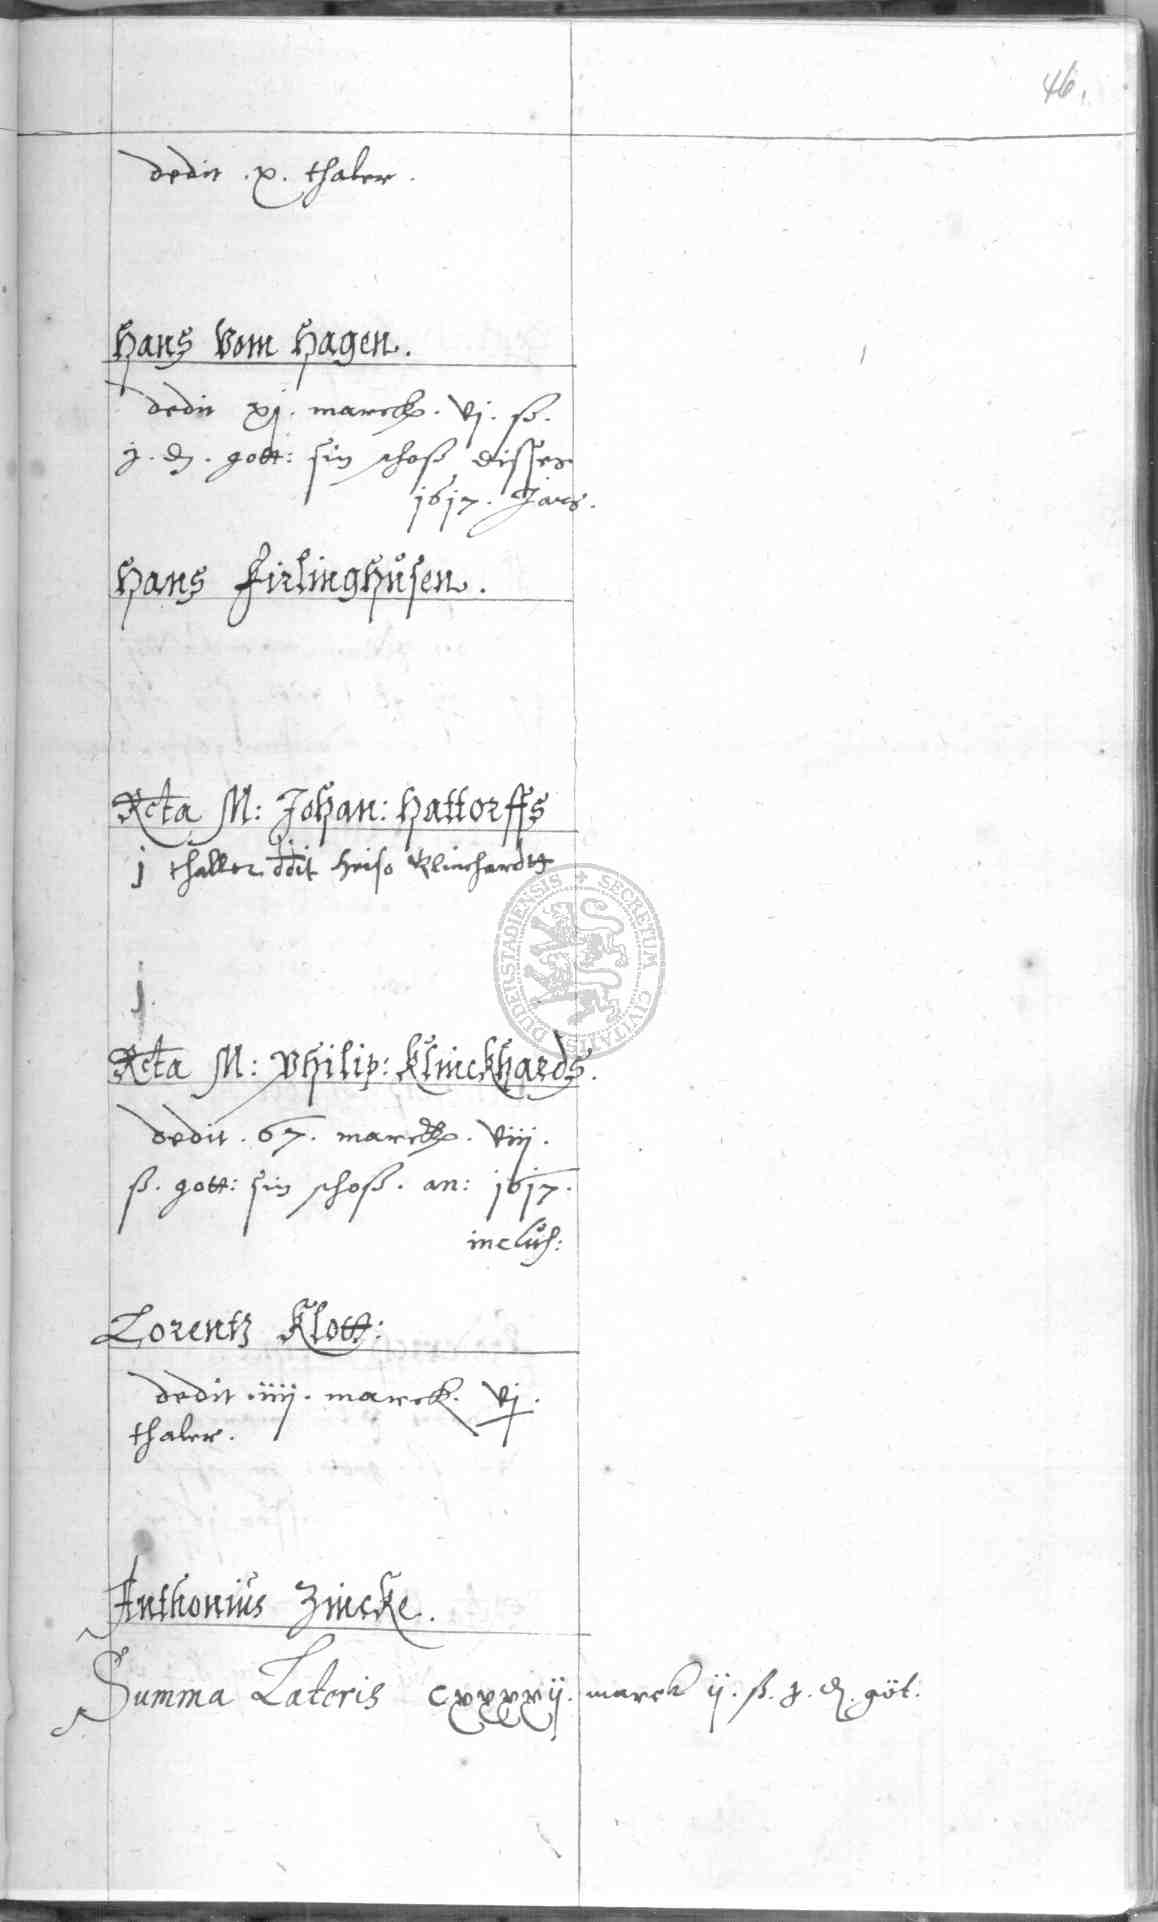 46.
dedit .x. thaler.
Hans Vom Hagen.
dedit xj. marck. vj. ß.
j. ₰. gott: sin schoß disses
1617. Jars.
Hans Firlinghusen.
Relicta M: Johan: Hattorffs
j thaller ddit Heiso Klinchardt
j
Relicta M: Philip: Klinckhards.
dedit. 67. marck. viij.
ß. gott: sin schoß. an: 1617.
inclus:
Lorentz Klott:
dedit iiij. marck. vj.
thaler.
Anthonius Zincke.
Summa Lateris cxxxxij. marck ij. ß. j. ₰. göt.
DUDERSTADIENSIS SECRETUM CIVITATIS